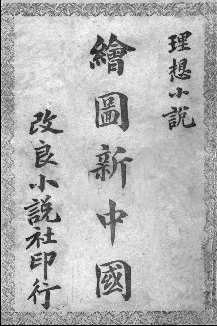 理想小説
繪圖新中國
改良小說社印行